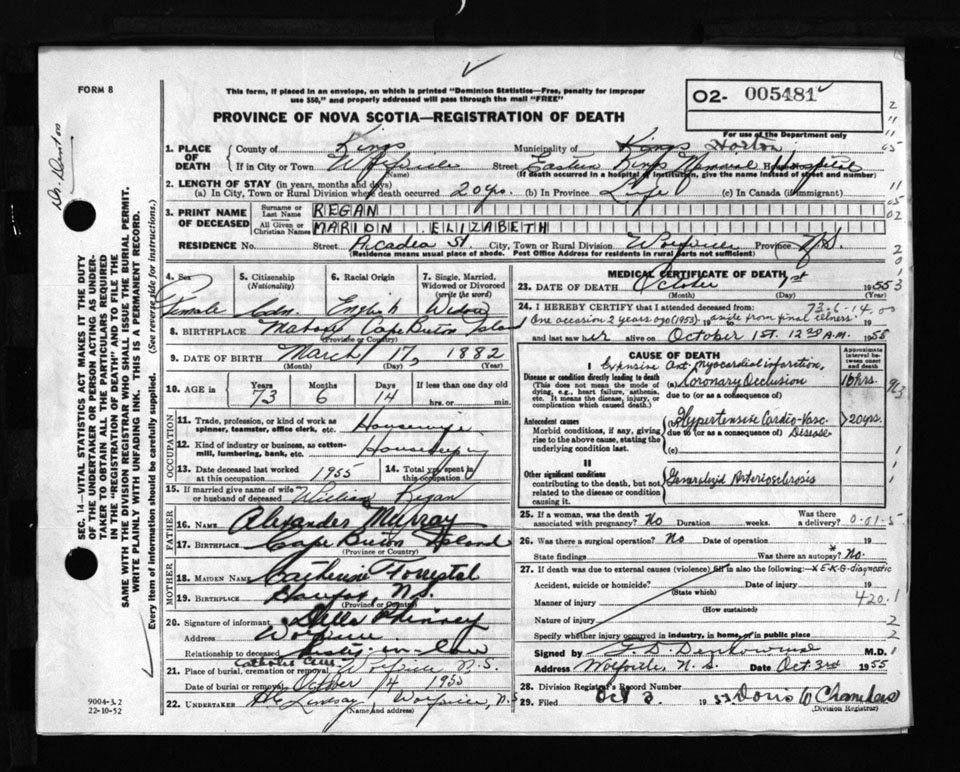 FORM 8
This form, if placed in an envelope, on which is printed "Dominion Statistics—Free, penalty for improper
use $50," and properly addressed will pass through the mail "FREE"
02- 005481
PROVINCE OF NOVA SCOTIA—REGISTRATION OF DEATH
For use of the Department only
1. PLACE OF DEATH County of Kings Municipality of Kings Horton
If in City or Town Wolfville Street Eastern Kings Memorial Hospital
(Name) (If death occurred in a hospital or institution, give the name instead of street and number)
2. LENGTH OF STAY (in years, months and days)
(a) In City, Town or Rural Division where death occurred 20 yrs. (b) In Province Life (c) In Canada (if immigrant)
3. PRINT NAME OF DECEASED Surname or Last Name REGAN
All Given or Christian Names MARION ELIZABETH
RESIDENCE No. Street Acadia St. City, Town or Rural Division Wolfville Province N.S.
(Residence means usual place of abode. Post Office Address for residents in rural parts not sufficient)
4. Sex Female
5. Citizenship (Nationality) Cdn.
6. Racial Origin English
7. Single, Married, Widowed or Divorced (write the word) Widow
8. BIRTHPLACE Mabou Cape Breton Island
(Province or Country)
9. DATE OF BIRTH March 17, 1882
(Month) (Day) (Year)
10. AGE in Years 73 Months 6 Days 14 If less than one day old
hrs. or min.
OCCUPATION
11. Trade, profession, or kind of work as spinner, teamster, office clerk, etc. Housewife
12. Kind of industry or business, as cotton-mill, lumbering, bank, etc. Housekeeping
13. Date deceased last worked at this occupation 1955 14. Total yrs. spent in this occupation
15. If married give name of wife or husband of deceased William Regan
FATHER
16. NAME Alexander Murray
17. BIRTHPLACE Cape Breton Island
(Province or Country)
MOTHER
18. MAIDEN NAME Catherine Forrestal
19. BIRTHPLACE Halifax, N.S.
(Province or Country)
20. Signature of informant Phinney
Address Wolfville
Relationship to deceased sister-in-law
21. Place of burial, cremation or removal Catholic Cem. Wolfville N.S.
Date of burial or removal October 4 1955
22. UNDERTAKER Lindsay Wolfville, N.S.
(Name and address)
MEDICAL CERTIFICATE OF DEATH
23. DATE OF DEATH October 1st 1955
(Month) (Day) (Year)
24. I HEREBY CERTIFY that I attended deceased from: 73-6-14
One occasion 2 years ago (1953) aside from final illness
and last saw her alive on October 1st. 12:30 A.M. 1955
CAUSE OF DEATH
Approximate interval between onset and death
I
Disease or condition directly leading to death
(This does not mean the mode of dying, e.g., heart failure, asthenia, etc. It means the disease, injury, or complication which caused death.)
Extensive Ant. Myocardial infarction,
(a) Coronary Occlusion 10 hrs.
due to (or as a consequence of)
Antecedent causes
Morbid conditions, if any, giving rise to the above cause, stating the underlying condition last.
(b) Hypertensive Cardio-Vasc. Disease 20 yrs.
due to (or as a consequence of)
(c)
II
Other significant conditions
contributing to the death, but not related to the disease or condition causing it.
Generalized Arteriosclerosis
25. If a woman, was the death associated with pregnancy? No Duration weeks. Was there a delivery? 0-01-5
26. Was there a surgical operation? No Date of operation 19
State findings Was there an autopsy? No.
27. If death was due to external causes (violence) fill in also the following:— * E.K.G. diagnostic
Accident, suicide or homicide? Date of injury 19
(State which)
Manner of injury 420.1
(How sustained)
Nature of injury
Specify whether injury occurred in industry, in home, or in public place
Signed by M.D.
Address Wolfville, N.S. Date Oct. 3rd 1955
28. Division Registrar's Record Number
29. Filed Oct 3. 19 Doris W Chambers
(Division Registrar)
SEC. 14—VITAL STATISTICS ACT MAKES IT THE DUTY
OF THE UNDERTAKER OR PERSON ACTING AS UNDER-
TAKER TO OBTAIN ALL THE PARTICULARS REQUIRED
IN THE "REGISTRATION OF DEATH" AND TO FILE THE
SAME WITH THE DIVISION REGISTRAR WHO SHALL ISSUE THE BURIAL PERMIT.
WRITE PLAINLY WITH UNFADING INK. THIS IS A PERMANENT RECORD.
Every item of information should be carefully supplied. (See reverse side for instructions.)
9004-3.2
22-10-52